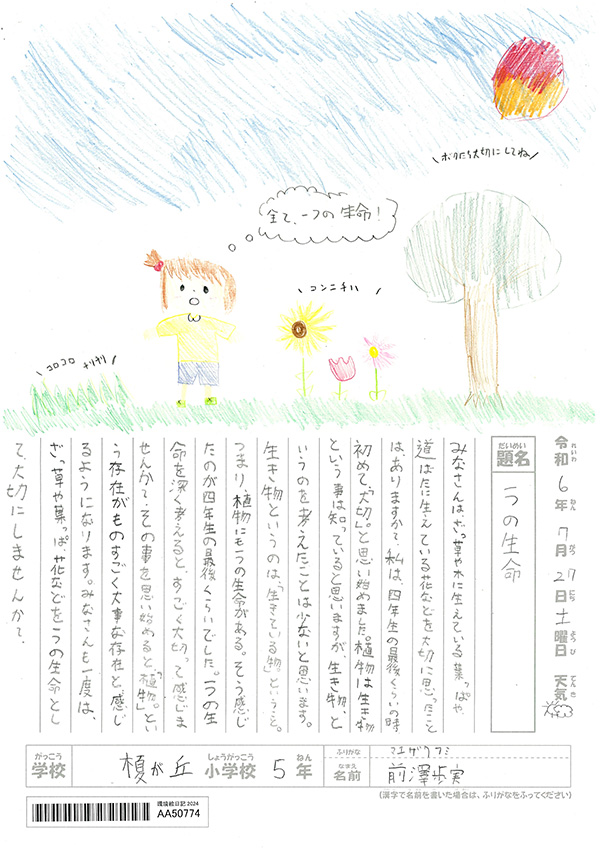 \ボクたち大切にしてね/
全て、一つの生命!
\コンニチハ/
\コロコロ チリチリ/
令和6年7月27日土曜日 天気
れいわ ねん がつ にち ようび てんき
だいめい
題名
一つの生命
みなさんは、ざっ草や木に生えている葉っぱや、
道ばたに生えている花などを大切に思ったこと
はありますか?私は、四年生の最後くらいの時
初めて、「大切。」と思い始めました。植物は生き物
という事は知っていると思いますが、生き物、と
いうのを考えたことは少ないと思います。
生き物というのは、「生きている物。」という意。
つまり、植物にも一つの生命がある。そう感じ
たのが四年生の最後くらいでした。一つの生
命を深く考えると、すごく大切って感じま
せんか?その事を思い始めると、「植物。」とい
う存在がものすごく大事な存在と、感じ
るようになります。みなさんも一度は、
ざっ草や葉っぱ、花などを一つの生命とし
て、大切にしませんか?
がっこう しょうがっこう ねん
学校 榎が丘 小学校 5年
ふりがな マエザワアミ
なまえ
名前 前澤歩実
(漢字で名前を書いた場合は、ふりがなをふってください)
環境絵日記2024
AA50774